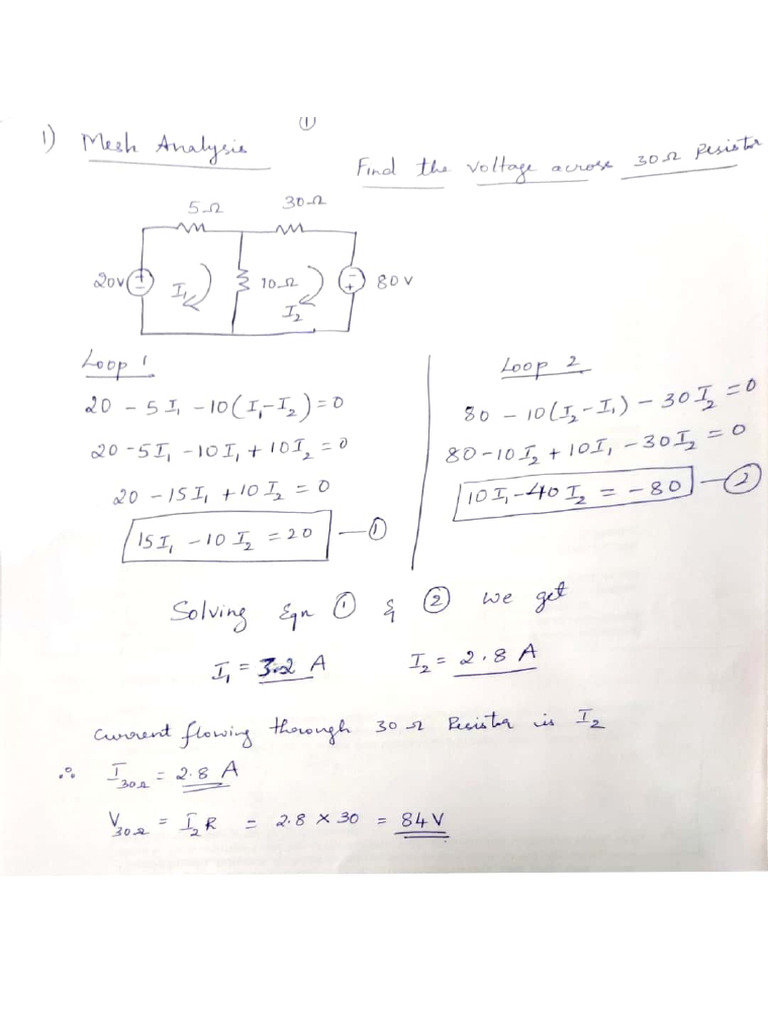 ①
1) Mesh Analysis
Find the voltage across 30Ω Resistor
5Ω 30Ω
20V + - I₁ 10Ω I₂ - + 80V
Loop 1
20 - 5I₁ - 10(I₁-I₂) = 0
20 - 5I₁ - 10I₁ + 10I₂ = 0
20 - 15I₁ + 10I₂ = 0
15I₁ - 10I₂ = 20 — ①
Loop 2
80 - 10(I₂-I₁) - 30I₂ = 0
80 - 10I₂ + 10I₁ - 30I₂ = 0
10I₁ - 40I₂ = -80 — ②
Solving Eqn ① & ② we get
I₁ = 3.2 A I₂ = 2.8 A
Current flowing through 30Ω Resistor is I₂
∴ I₃₀Ω = 2.8 A
V₃₀Ω = I₂R = 2.8 × 30 = 84V